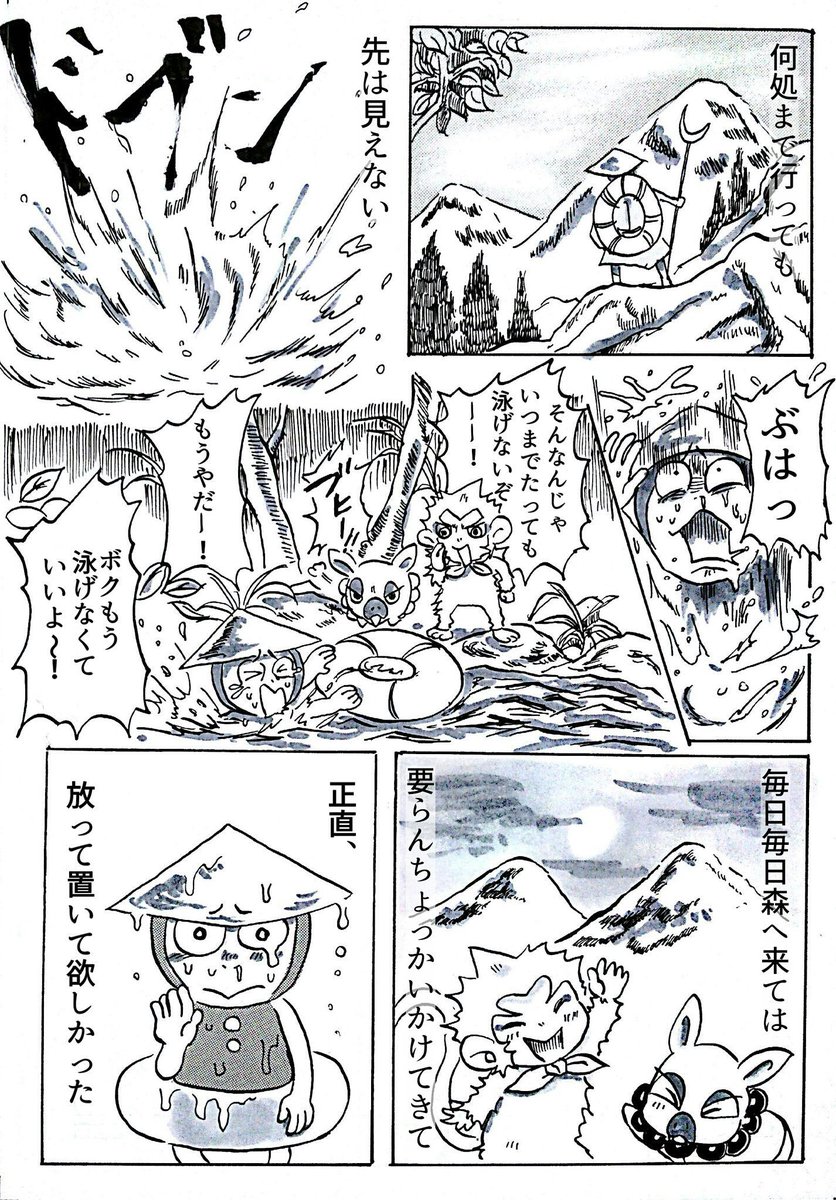 何処まで行っても
先は見えない
ドブン
ぶはっ
そんなんじゃ
いつまでたっても
泳げないぞ
ーー!
ブヒー!!
もうやだー!
ボクもう
泳げなくて
いいよ〜!
毎日毎日森へ来ては
要らんちょっかいかけてきて
正直、
放って置いて欲しかった